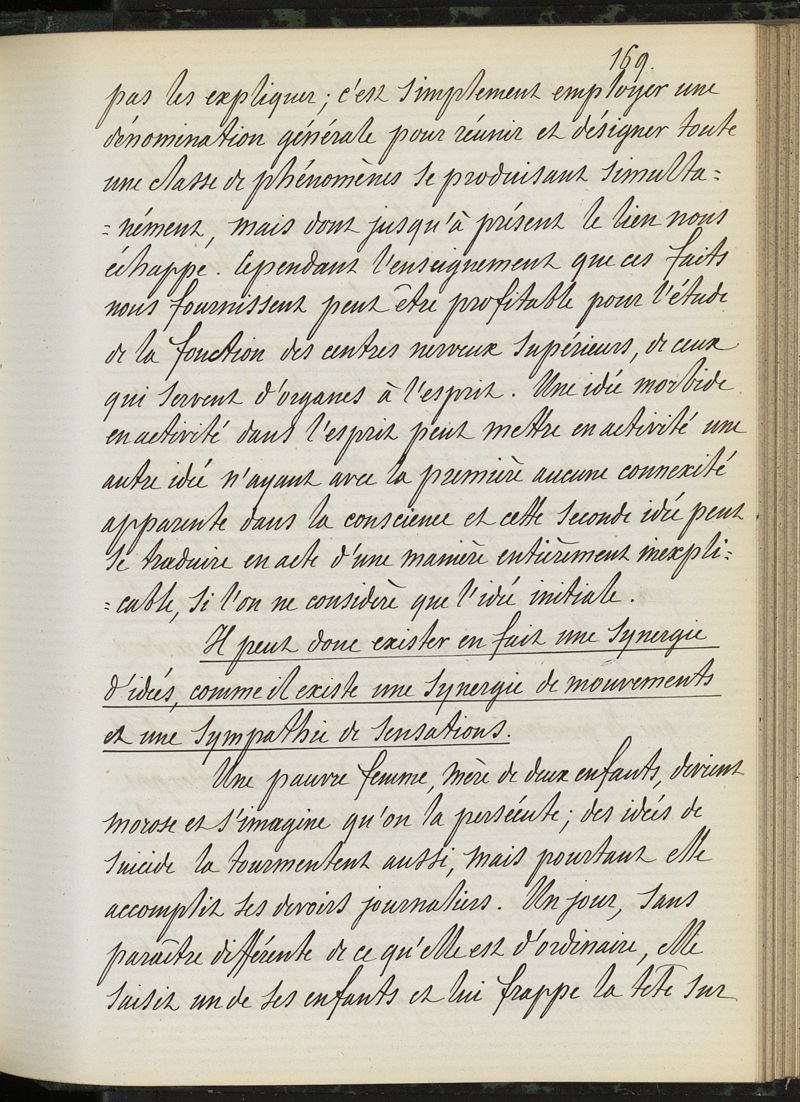 169.
pas les expliquer ; c'est simplement employer une
dénomination générale pour réunir et désigner toute
une classe de phénomènes se produisant simulta=
=nément, mais dont jusqu'à présent le lien nous
échappe. Cependant l'enseignement que ces faits
nous fournissent peut être profitable pour l'étude
de la fonction des centres nerveux supérieurs, de ceux
qui servent d'organes à l'esprit. Une idée morbide
en activité dans l'esprit peut mettre en activité une
autre idée n'ayant avec la première aucune connexité
apparente dans la conscience et cette seconde idée peut
se traduire en acte d'une manière entièrement inexpli=
=cable, si l'on ne considère que l'idée initiale.
Il peut donc exister en fait une synergie
d'idées, comme il existe une synergie de mouvements
et une sympathie de sensations.
Une pauvre femme, mère de deux enfants, devient
morose et s'imagine qu'on la persécute ; des idées de
suicide la tourmentent aussi, mais pourtant elle
accomplit ses devoirs journaliers. Un jour, sans
paraître différente de ce qu'elle est d'ordinaire, elle
saisit un de ses enfants et lui frappe la tête sur